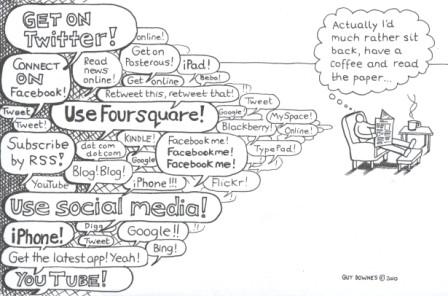 GET ON
Twitter!
online!
CONNECT
ON
Facebook!
Read
news
online!
Get on
Posterous!
iPad!
Get online
Bebo!
Retweet this, retweet that!
Tweet
Tweet!
Use Foursquare!
Google
Tweet
MySpace!
Blackberry!
Online!
Subscribe
by RSS!
dot com
dot com
KINDLE!
Google
Facebook me!
Facebook me!
Facebook me!
TypePad!
Blog! Blog!
YouTube
iPhone!!!
Flickr!
Use social media!
iPhone!
Digg
Tweet
Google!!
Bing!
Get the latest app! Yeah!
YOU TUBE!
Actually I'd
much rather sit
back, have a
coffee and read
the paper...
GUY DOWNES © 2010